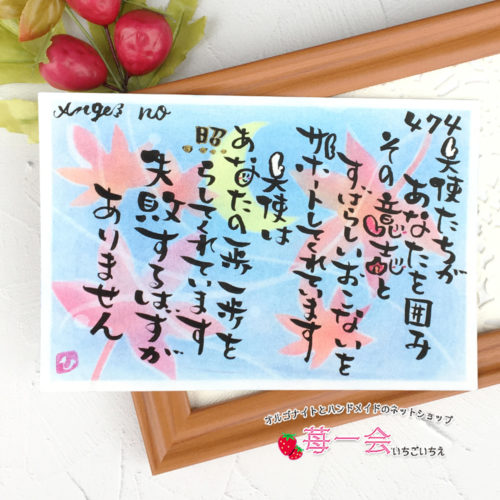 Angel's no
474
天使たちが
あなたを囲み
その意志と
すばらしいおこないを
サポートしてくれています
天使は
あなたの一歩一歩を
照らしてくれています
失敗するはずが
ありません
ひ
オルゴナイトとハンドメイドのネットショップ
苺一会
いちごいちえ